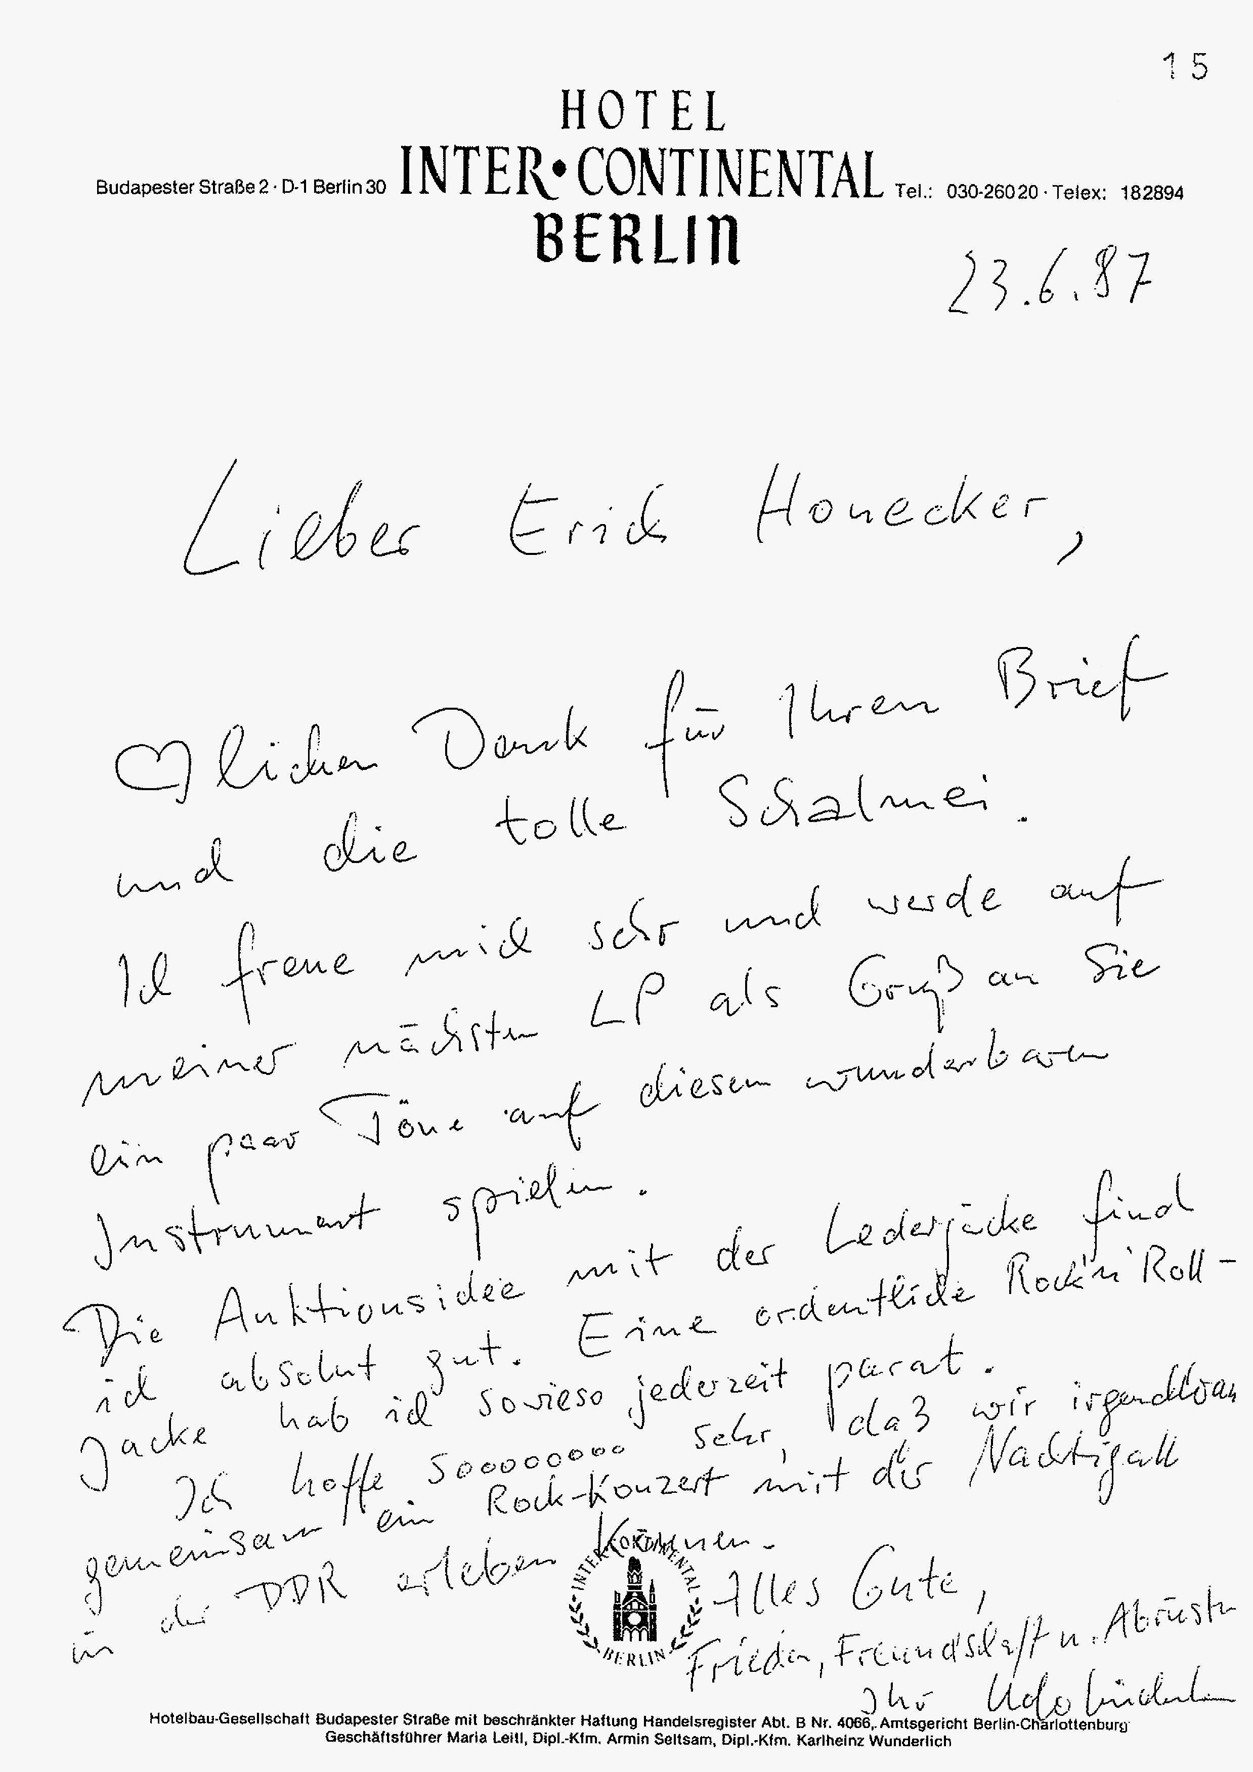 15
HOTEL
INTER·CONTINENTAL
BERLIN
Budapester Straße 2 · D-1 Berlin 30
Tel.: 030-260 20 · Telex: 182894
23.6.87
Lieber Erich Honecker,
♡lichen Dank für Ihren Brief
und die tolle Schalmei.
Ich freue mich sehr und werde auf
meiner nächsten LP als Gruß an Sie
ein paar Töne auf diesem wunderbaren
Instrument spielen.
Die Auktionsidee mit der Lederjacke find
ich absolut gut. Eine ordentliche Rock'n'Roll-
Jacke hab ich sowieso jederzeit parat.
Ich hoffe sooooooooo sehr, daß wir irgendwann
gemeinsam ein Rock-Konzert mit der Nachtigall
in der DDR erleben können.
Alles Gute,
Frieden, Freundschaft u. Abrüstn
Ihr Udo Lindenberg
INTER·CONTINENTAL
BERLIN
Hotelbau-Gesellschaft Budapester Straße mit beschränkter Haftung Handelsregister Abt. B Nr. 4066, Amtsgericht Berlin-Charlottenburg
Geschäftsführer Maria Leitl, Dipl.-Kfm. Armin Seltsam, Dipl.-Kfm. Karlheinz Wunderlich